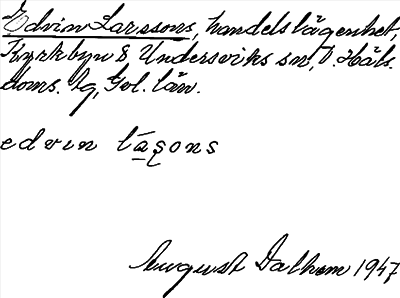 Edvin Larssons, handelslägenhet,
Kyrkbyn 8, Undersviks sn, V. Häls.
doms. lg, Gvl. län.
edvin la̱ʂons
August Dalhem 1947